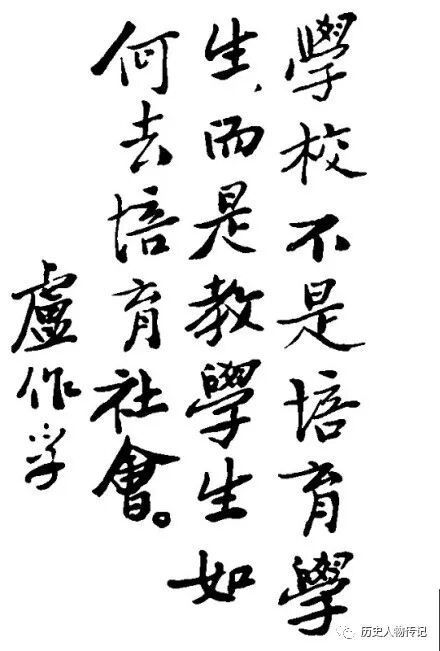 學校不是培育學
生、而是教學生如
何去培育社會。
盧作孚
历史人物传记